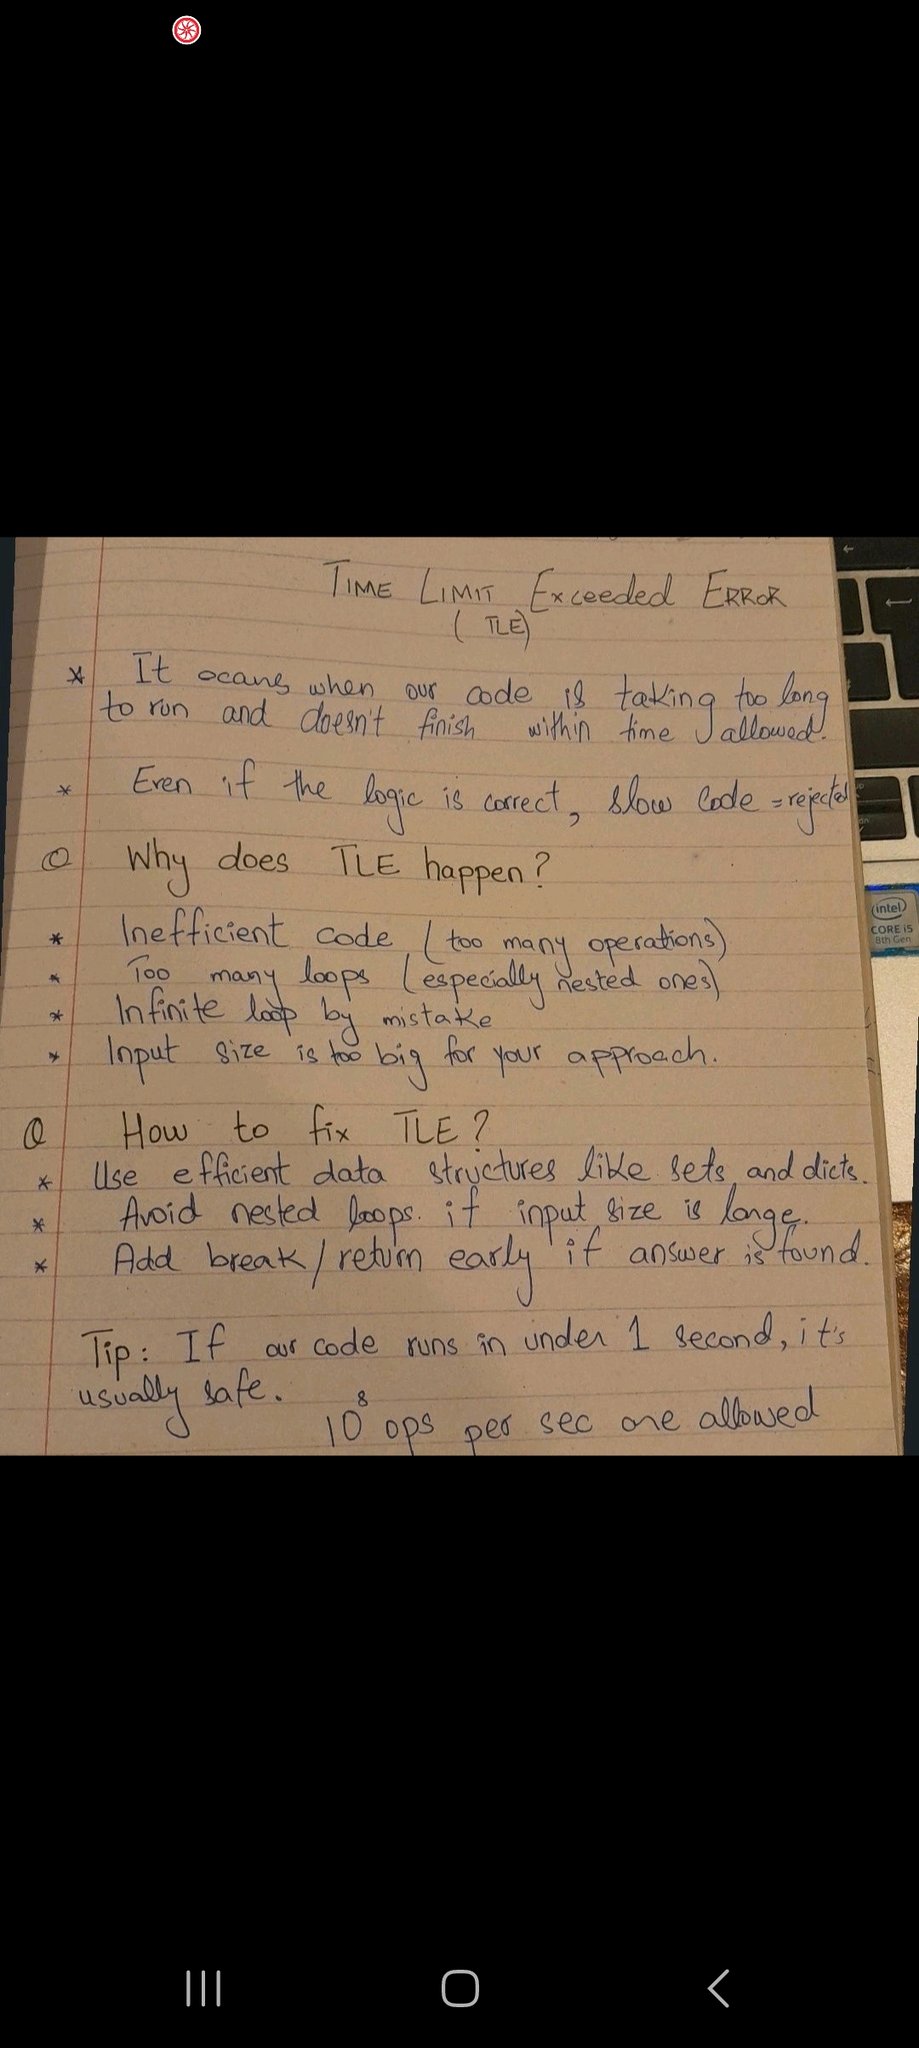 TIME LIMIT Exceeded ERROR
(TLE)
* It ocans when our code is taking too long
to run and doesn't finish within time allowed.
* Even if the logic is correct, slow code = rejected
Q Why does TLE happen?
* Inefficient code (too many operations)
* Too many loops (especially nested ones)
* Infinite loop by mistake
* Input size is too big for your approach.
Q How to fix TLE?
* Use efficient data structures like sets and dicts.
* Avoid nested loops. if input size is large.
* Add break/return early if answer is found.
Tip: If our code runs in under 1 second, it's
usually safe.
10⁸ ops per sec are allowed
intel
CORE i5
8th Gen